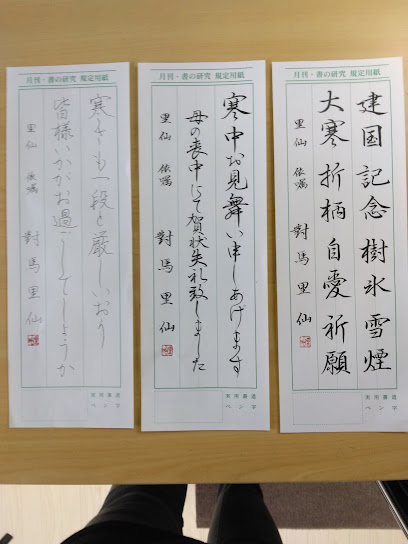 月刊・書の研究 規定用紙
建国記念樹氷雪煙
大寒折柄自愛祈願
里仙 依嘱 對馬里仙
実用書道
ペン字
月刊・書の研究 規定用紙
寒中お見舞い申しあげます
母の喪中にて賀状失礼致しました
里仙 依嘱 對馬里仙
実用書道
ペン字
月刊・書の研究 規定用紙
寒さも一段と厳しいおり
皆様いかがお過ごしでしょうか
里仙 依嘱 對馬里仙
実用書道
ペン字